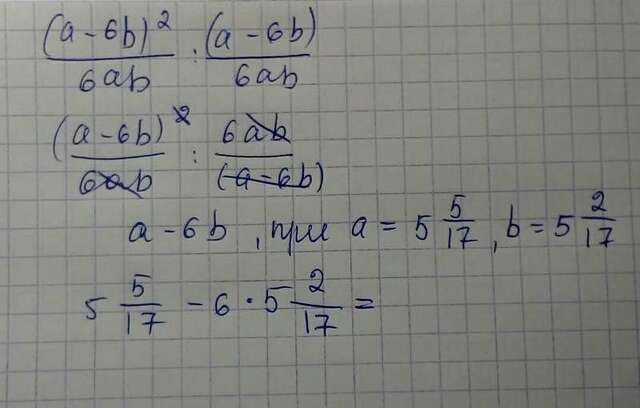 (a - 6b)² / 6ab : (a - 6b) / 6ab
(a - 6b)² / 6ab : 6ab / (a - 6b)
a - 6b , при a = 5 5/17 , b = 5 2/17
5 5/17 - 6 · 5 2/17 =